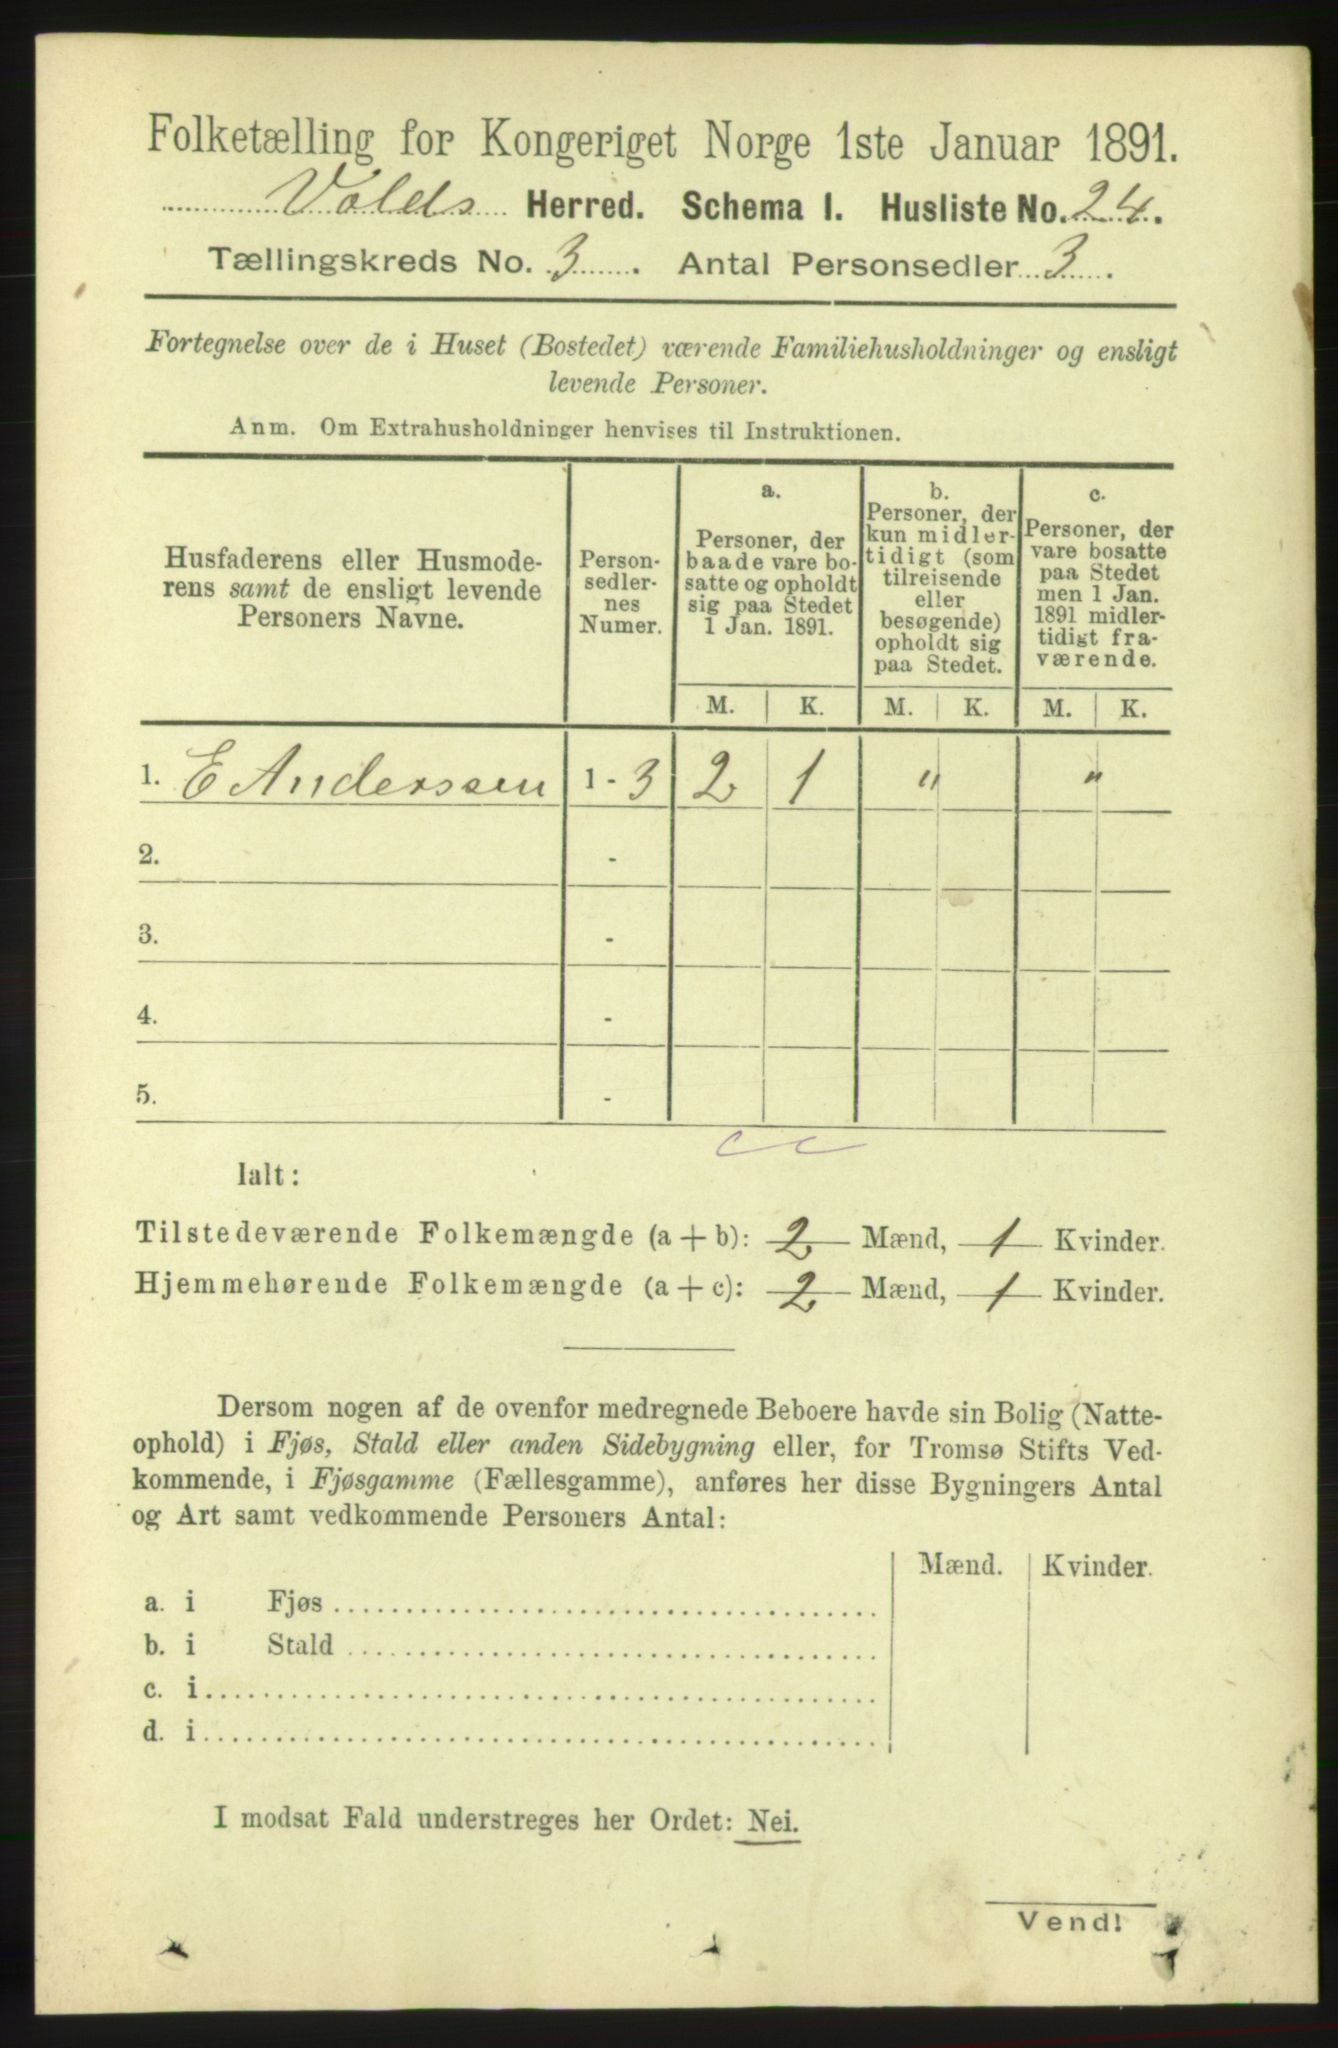 Folketælling for Kongeriget Norge 1ste Januar 1891.
Volds Herred. Schema I. Husliste No. 24.
Tællingskreds No. 3. Antal Personsedler 3.
Fortegnelse over de i Huset (Bostedet) værende Familiehusholdninger og ensligt
levende Personer.
Anm. Om Extrahusholdninger henvises til Instruktionen.
Husfaderens eller Husmode-
rens samt de ensligt levende
Personers Navne.
Person-
sedler-
nes
Numer.
a.
Personer, der
baade vare bo-
satte og opholdt
sig paa Stedet
1 Jan. 1891.
b.
Personer, der
kun midler-
tidigt (som
tilreisende
eller
besøgende)
opholdt sig
paa Stedet.
c.
Personer, der
vare bosatte
paa Stedet
men 1 Jan.
1891 midler-
tidigt fra-
værende.
M. K. M. K. M. K.
1. E Anderssen 1 - 3 2 1 " "
2. -
3. -
4. -
5. -
Ialt:
Tilstedeværende Folkemængde (a + b): 2 Mænd, 1 Kvinder.
Hjemmehørende Folkemængde (a + c): 2 Mænd, 1 Kvinder.
Dersom nogen af de ovenfor medregnede Beboere havde sin Bolig (Natte-
ophold) i Fjøs, Stald eller anden Sidebygning eller, for Tromsø Stifts Ved-
kommende, i Fjøsgamme (Fællesgamme), anføres her disse Bygningers Antal
og Art samt vedkommende Personers Antal:
Mænd. Kvinder.
a. i Fjøs
b. i Stald
c. i
d. i
I modsat Fald understreges her Ordet: Nei.
Vend!